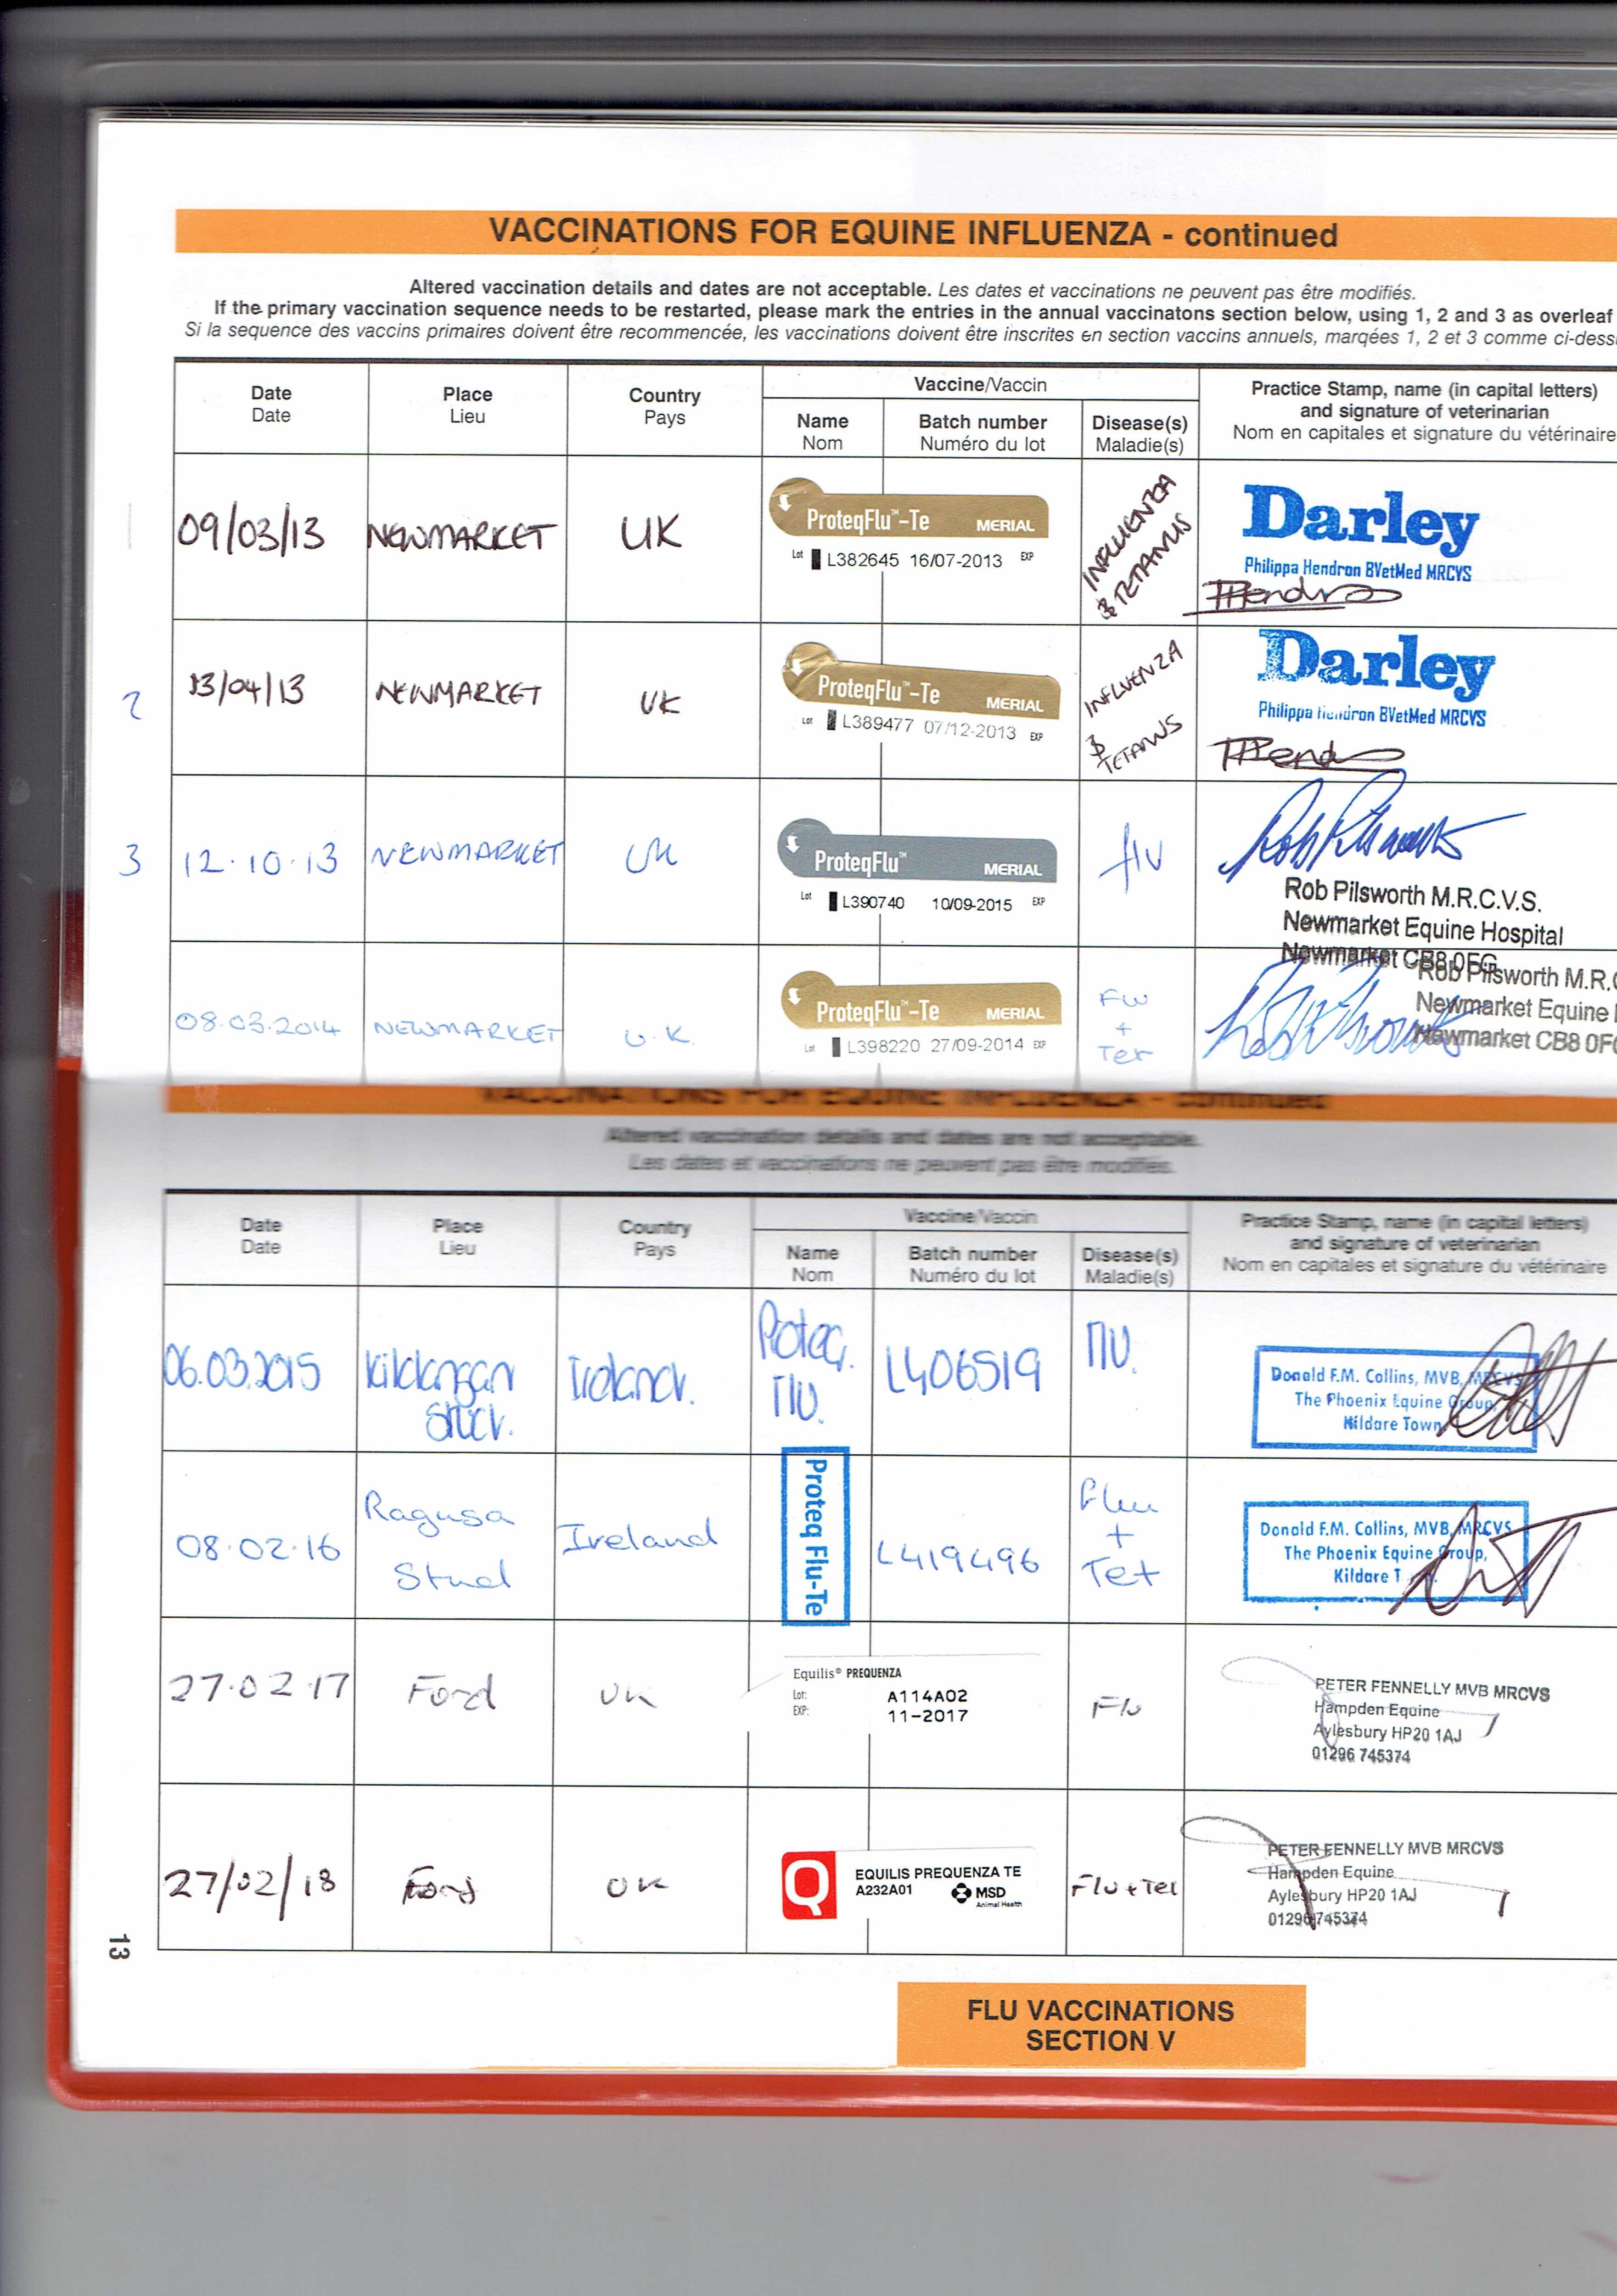 VACCINATIONS FOR EQUINE INFLUENZA - continued
Altered vaccination details and dates are not acceptable. Les dates et vaccinations ne peuvent pas être modifiés.
If the primary vaccination sequence needs to be restarted, please mark the entries in the annual vaccinatons section below, using 1, 2 and 3 as overleaf
Si la sequence des vaccins primaires doivent être recommencée, les vaccinations doivent être inscrites en section vaccins annuels, marqées 1, 2 et 3 comme
Date
Date
Place
Lieu
Country
Pays
Vaccine/Vaccin
Name
Nom
Batch number
Numéro du lot
Disease(s)
Maladie(s)
Practice Stamp, name (in capital letters)
and signature of veterinarian
Nom en capitales et signature du vétérinaire
1
09/03/13
NEWMARKET
UK
ProteqFlu™-Te MERIAL
Lot L382645 16/07-2013 EXP
INFLUENZA
& TETANUS
Darley
Philippa Hendron BVetMed MRCVS
2
13/04/13
NEWMARKET
UK
ProteqFlu™-Te MERIAL
Lot L389477 07/12-2013 EXP
INFLUENZA
&
TETANUS
Darley
Philippa Hendron BVetMed MRCVS
3
12.10.13
NEWMARKET
UK
ProteqFlu™ MERIAL
Lot L390740 10/09-2015 EXP
flu
Rob Pilsworth M.R.C.V.S.
Newmarket Equine Hospital
Newmarket CB8 0FG
08.03.2014
NEWMARKET
U.K.
ProteqFlu™-Te MERIAL
Lot L398220 27/09-2014 EXP
Flu
+
Tet
Rob Pilsworth
Newmarket Equine
Newmarket CB8
VACCINATIONS FOR EQUINE INFLUENZA - continued
Altered vaccination details and dates are not acceptable.
Les dates et vaccinations ne peuvent pas être modifiés.
Date
Date
Place
Lieu
Country
Pays
Vaccine/Vaccin
Name
Nom
Batch number
Numéro du lot
Disease(s)
Maladie(s)
Practice Stamp, name (in capital letters)
and signature of veterinarian
Nom en capitales et signature du vétérinaire
06.03.2015
Kildangan
Stud.
Ireland.
Proteq.
Flu.
L406519
Flu.
Donald F.M. Collins, MVB, MRCVS
The Phoenix Equine Group,
Kildare Town
08.02.16
Ragusa
Stud
Ireland
Proteq Flu-Te
L419496
Flu
+
Tet
Donald F.M. Collins, MVB, MRCVS
The Phoenix Equine Group,
Kildare
27.02.17
Ford
UK
Equilis® PREQUENZA
Lot: A114A02
EXP: 11-2017
Flu
PETER FENNELLY MVB MRCVS
Hampden Equine
Aylesbury HP20 1AJ
01296 745374
27/02/18
Ford
UK
Q
EQUILIS PREQUENZA TE
A232A01
MSD
Animal Health
Flu + Tet
PETER FENNELLY MVB MRCVS
Hampden Equine
Aylesbury HP20 1AJ
01296 745374
13
FLU VACCINATIONS
SECTION V